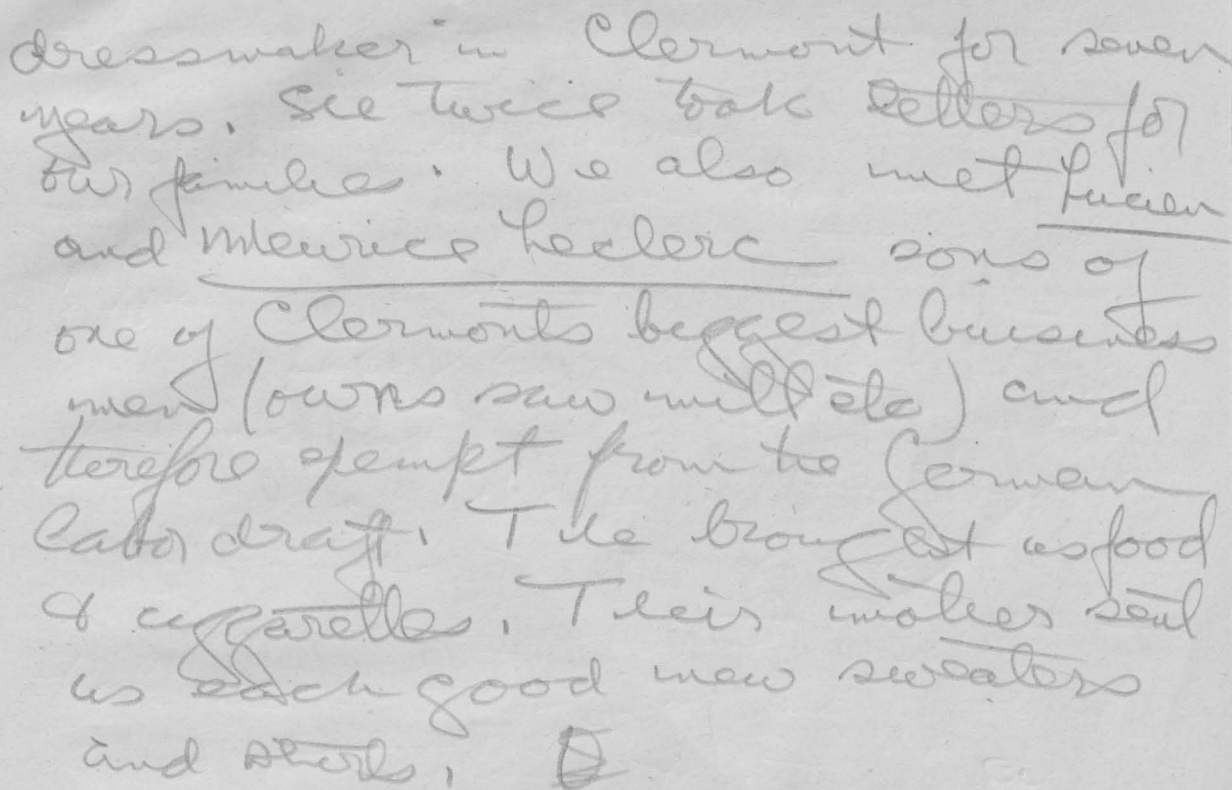 dressmaker in Clermont for seven
years. She twice took letters for
our families. We also met Lucien
and Meurice Leclerc sons of
one of Clermonts biggest business
men (owns saw mill etc) and
therefore exempt from the German
labor draft. The brought us food
& ciggarettes. Their mother sent
us each good new sweaters
and shorts.